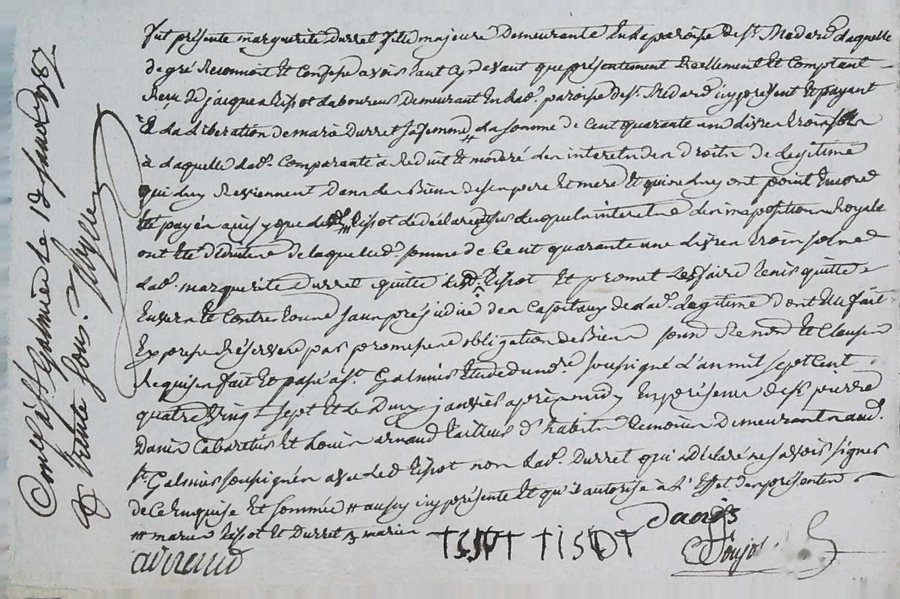 fut présente margueritte Durret fille majeure Demeurante En la paroisse de st. Medard Laquelle
de gré Reconnoit Et Confesse avoir Eut Cy devant que présentement Réellement Et Comptant
Reçu de jacque Tissot Laboureur Demeurant En lad. paroisse de st. Medard icy present Et payant
à la Libération de marie Durret sa femme la somme de Cent quarante une Livres trois sols
à laquelle lad. Comparante a Reduit Et modéré Les interets des droits de Legitime
qui luy Reviennent dans Les Biens de ses pere Et mere Et qui ne luy ont point Encore
Eté payés
ont Eté Déduitte de laquelle de somme de Cent quarante une Livres trois sols
lad. margueritte Durret quitte led. Tissot Et promet Les faire tenir quitte
Envers Et Contre tous sans prejudice des Capitaux de lad. Legitime dont Elle fait
Expresse Réserve par promesse obligation de Biens soum. Renon. Et Clauses
Requises fait Et passé a st. Galmier Etude du nre. soussigné L'an mil sept Cent
quatre Vingt sept Et le Duze janvier après midy En présence de sr. pierre
Danis Cabaretier Et Louis arnaud tailleur D'habits temoins Demeurants aud.
st. Galmier soussignés avec led. Tissot non lad. Durret qui a déclaré ne savoir signer
de Ce Enquise Et sommée # aussy icy présente Et qu'il autorise à L'Effet des présentes
# marie Tissot Et Durret mariés
TISOT
danis
arnaud
Conle à st Galmier le 12 janv. 1787